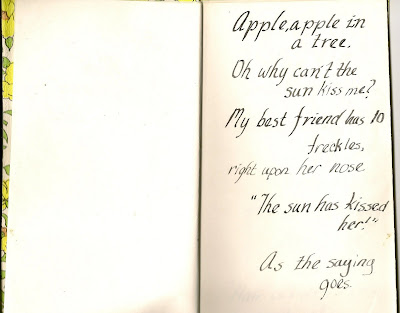 Apple, apple in
a tree.
Oh why can't the
sun kiss me?
My best friend has 10
freckles,
right upon her nose
"The sun has kissed
her!"
As the saying
goes.